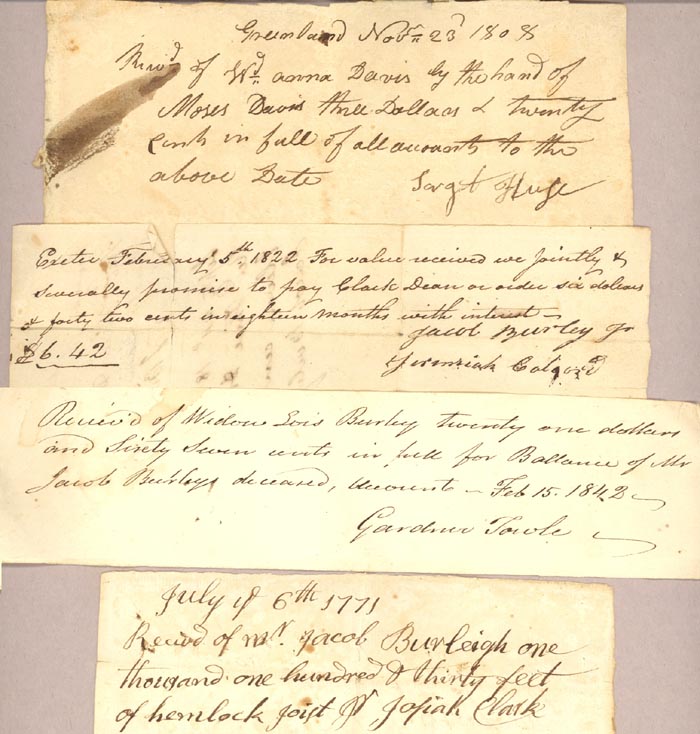 Greenland Novr 23d 1808
Reicvd of Wd anna Davis by the hand of
Moses Davis three Dollars & twenty
Cents in full of all accounts to the
above Date
Exeter February 5th 1822 For value received we Jointly &
Severally promise to pay Clark Dean or order six dollars
& forty two cents in eighteen months with interest –
Jacob Burley Jr
$6.42
Jeremiah
Receiv'd of Widow Lois Burley twenty one dollars
and Sixty Seven cents in full for Ballance of Mr
Jacob Burleys deceased, Account – Feb 15. 1842 –
Gardner Towle
July ye 6th 1771
Recivd of mr. Jacob Burleigh one
thousand one hundred & thirty feet
of hemlock joist pr Josiah Clark